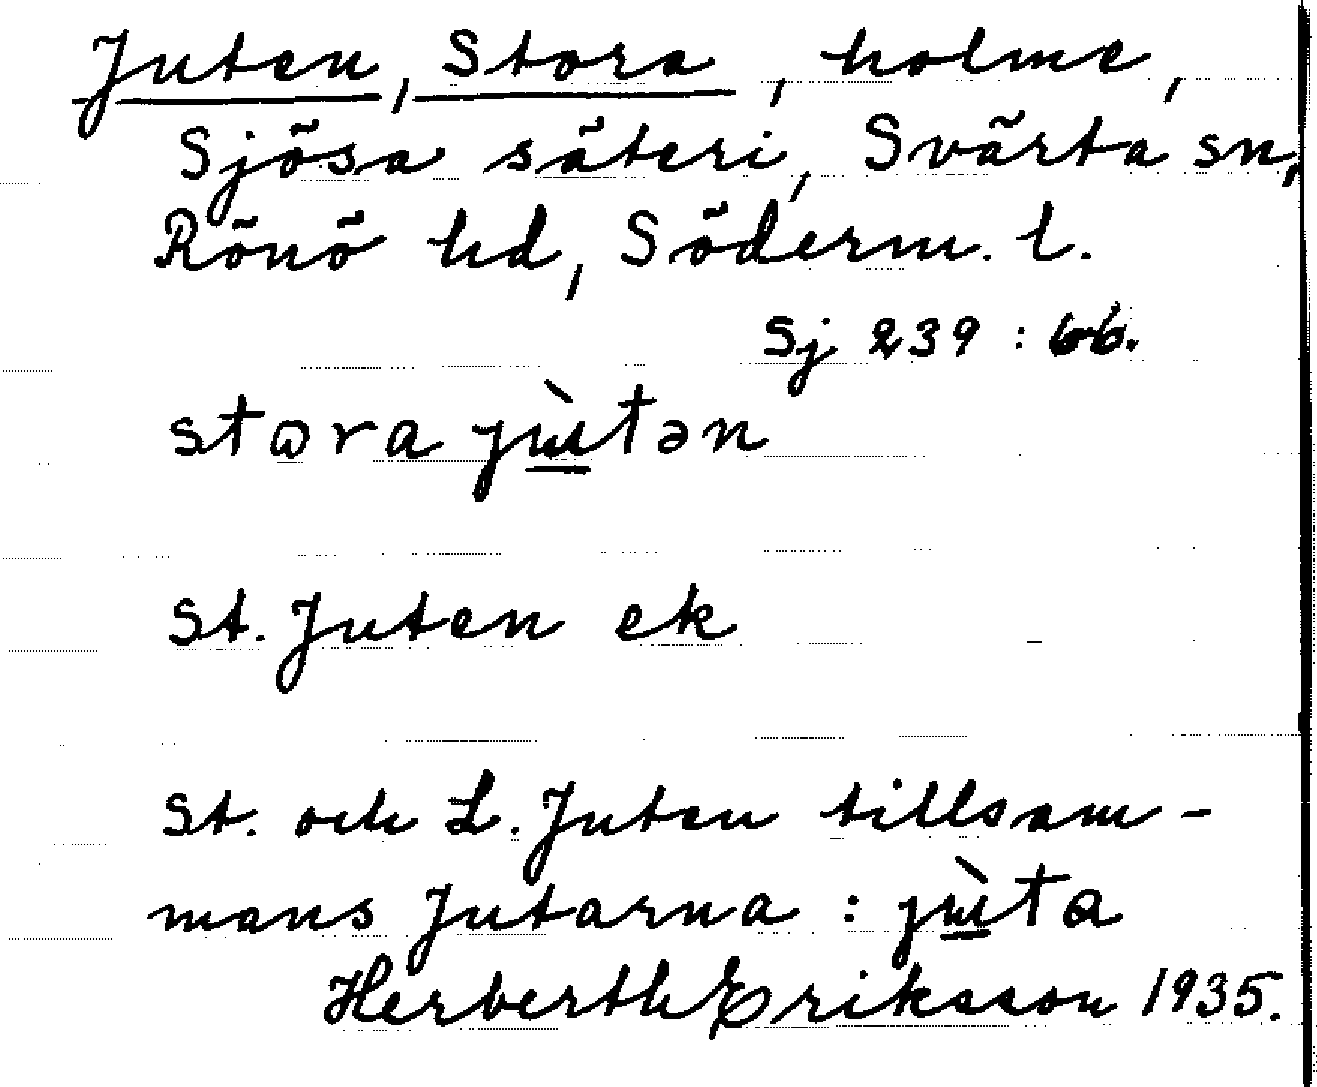 Juten, Stora, holme,
Sjösa säteri, Svärta sn,
Rönö hd, Söderm. l.
Sj 239 : 66.
stɷra jɯ̀tən
St. Juten ek
St. och L. Juten tillsam-
mans Jutarna : jɯ̀ta
Herberth Eriksson 1935.